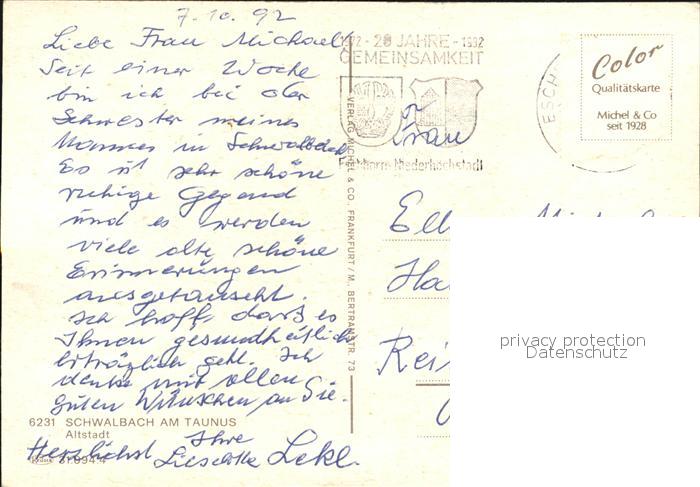 7.10.92
Liebe Frau Michael!
Seit einer Woche
bin ich bei der
Schwester meines
Mannes in Schwalbach
Es ist sehr schöne
ruhige Gegend
und es werden
viele alte schöne
Erinnerungen
ausgetauscht.
Ich hoff, dass es
Ihnen gesundheitlich
erträglich geht. Ich
denke mit allen
guten Wünschen an Sie.
6231 SCHWALBACH AM TAUNUS
Altstadt
Herzlichst Ihre
Lieselotte
VERLAG MICHEL & CO., FRANKFURT/M., BERTRAMSTR. 73
1972 - 20 JAHRE - 1992
GEMEINSAMKEIT
Niederhöchstadt
ESCH
Color
Qualitätskarte
Michel & Co
seit 1928
Frau
privacy protection
Datenschutz